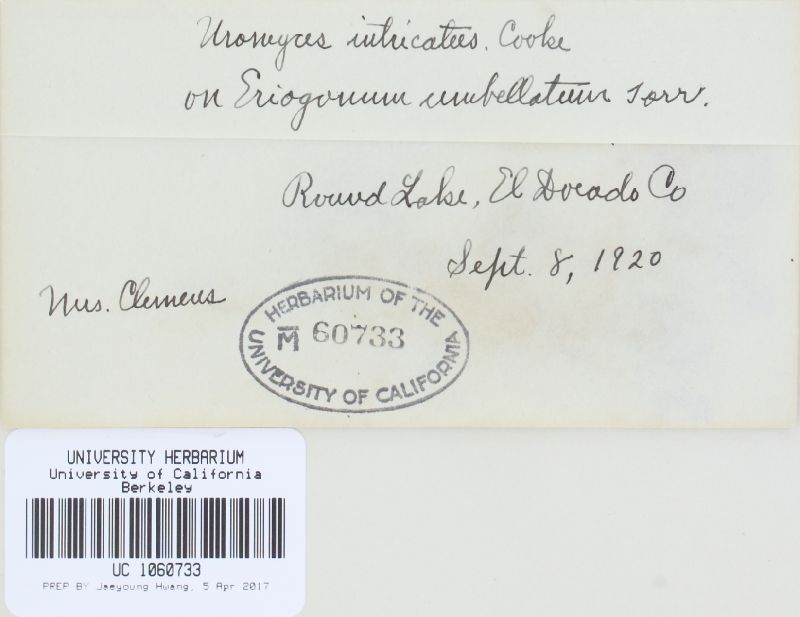 Uromyces intricatus. Cooke
on Eriogonum umbellatum Torr.
Round Lake, El Dorado Co
Sept. 8, 1920
Mrs. Clemens
HERBARIUM OF THE
M 60733
UNIVERSITY OF CALIFORNIA
UNIVERSITY HERBARIUM
University of California
Berkeley
UC 1060733
PREP BY Jaeyoung Hwang, 5 Apr 2017